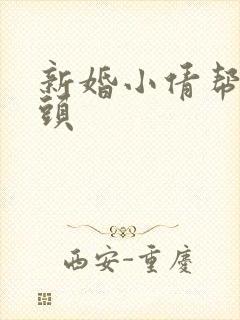 新婚小倩帮
頭
西安-重慶